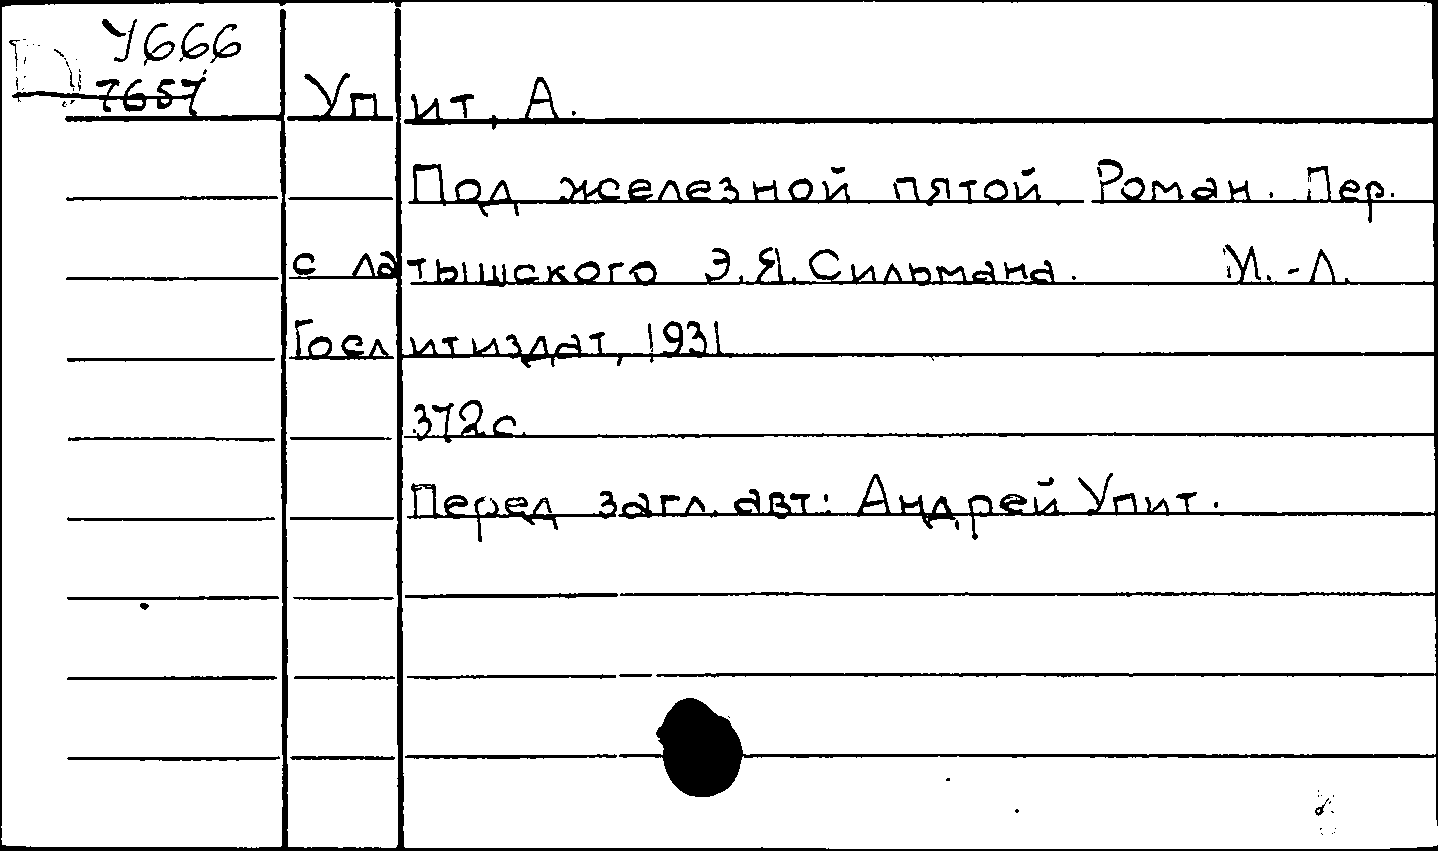 У666
7657
Упит, А.
Под железной пятой. Роман. Пер.
с латышского Э.Я.Сильмана. М.-Л.
Гослитиздат, 1931
372с.
Перед загл. авт: Андрей Упит.